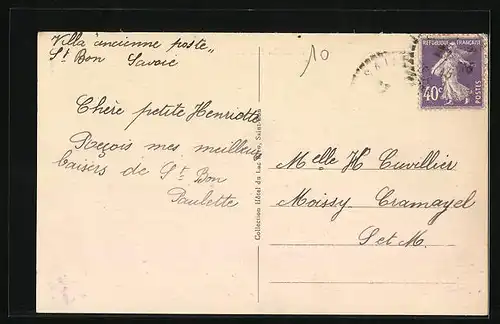 Villa "ancienne poste"
St Bon Savoie
10
REPUBLIQUE FRANCAISE
40c
POSTES
Chère petite Henriette
Reçois mes meilleurs
baisers de St Bon
Paulette
Melle H Cuvillier
Moissy Cramayel
S et M.
Collection Hôtel du Lac